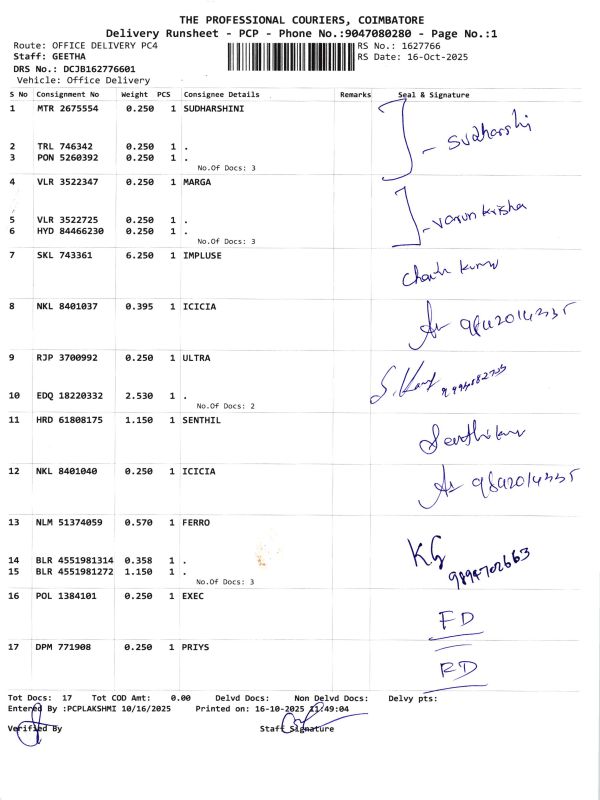 THE PROFESSIONAL COURIERS, COIMBATORE
Delivery Runsheet - PCP - Phone No.:9047080280 - Page No.:1
Route: OFFICE DELIVERY PC4 RS No.: 1627766
Staff: GEETHA RS Date: 16-Oct-2025
DRS No.: DCJB162776601
Vehicle: Office Delivery
S No Consignment No Weight PCS Consignee Details Remarks Seal & Signature
1 MTR 2675554 0.250 1 SUDHARSHINI
Sudharshi
2 TRL 746342 0.250 1 .
3 PON 5260392 0.250 1 .
No.Of Docs: 3
4 VLR 3522347 0.250 1 MARGA
Varun Krisha
5 VLR 3522725 0.250 1 .
6 HYD 84466230 0.250 1 .
No.Of Docs: 3
7 SKL 743361 6.250 1 IMPLUSE
8 NKL 8401037 0.395 1 ICICIA
9842014335
9 RJP 3700992 0.250 1 ULTRA
10 EDQ 18220332 2.530 1 .
No.Of Docs: 2
11 HRD 61808175 1.150 1 SENTHIL
12 NKL 8401040 0.250 1 ICICIA
9842014335
13 NLM 51374059 0.570 1 FERRO
KG
14 BLR 4551981314 0.358 1 .
15 BLR 4551981272 1.150 1 .
9894702663
No.Of Docs: 3
16 POL 1384101 0.250 1 EXEC
FD
17 DPM 771908 0.250 1 PRIYS
RD
Tot Docs: 17 Tot COD Amt: 0.00 Delvd Docs: Non Delvd Docs: Delvy pts:
Entered By :PCPLAKSHMI 10/16/2025 Printed on: 16-10-2025 11:49:04
Verified By Staff Signature